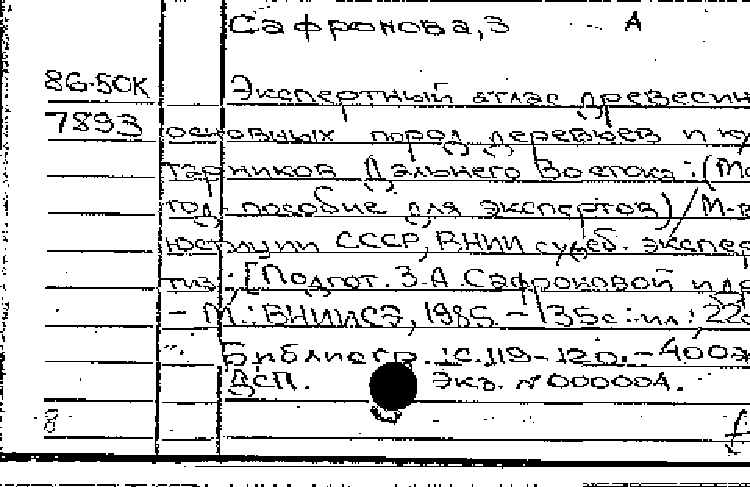 Сафронова, З А
86-50К Экспертный атлас древесин
7893 основных пород деревьев и ку
тарников Дальнего Востока: (Ме
тод. пособие для экспертов) / М-в
юстиции СССР, ВНИИ судеб. экспер
тиз: [Подгот. З.А Сафроновой и др
- М.: ВНИИСЭ, 1985. - 135с: ил.; 22
Библиогр. с. 119-120. - 400э
ДСП. Экз. № 000004.
8